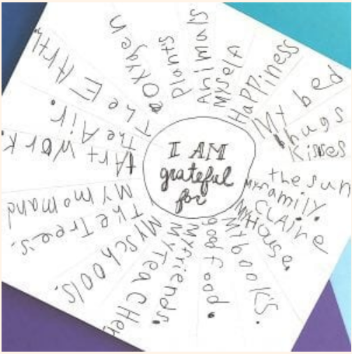 I AM
grateful
for
Happiness
My bed
hugs
kisses
the sun
My family.
CLAire
My House.
My book's.
good food.
My friends.
My TeACHer
My SCHOOl's.
The Tree's.
My mom and
Art work.
The Air.
The EArth,
oxygen
plants
Animals
Myself